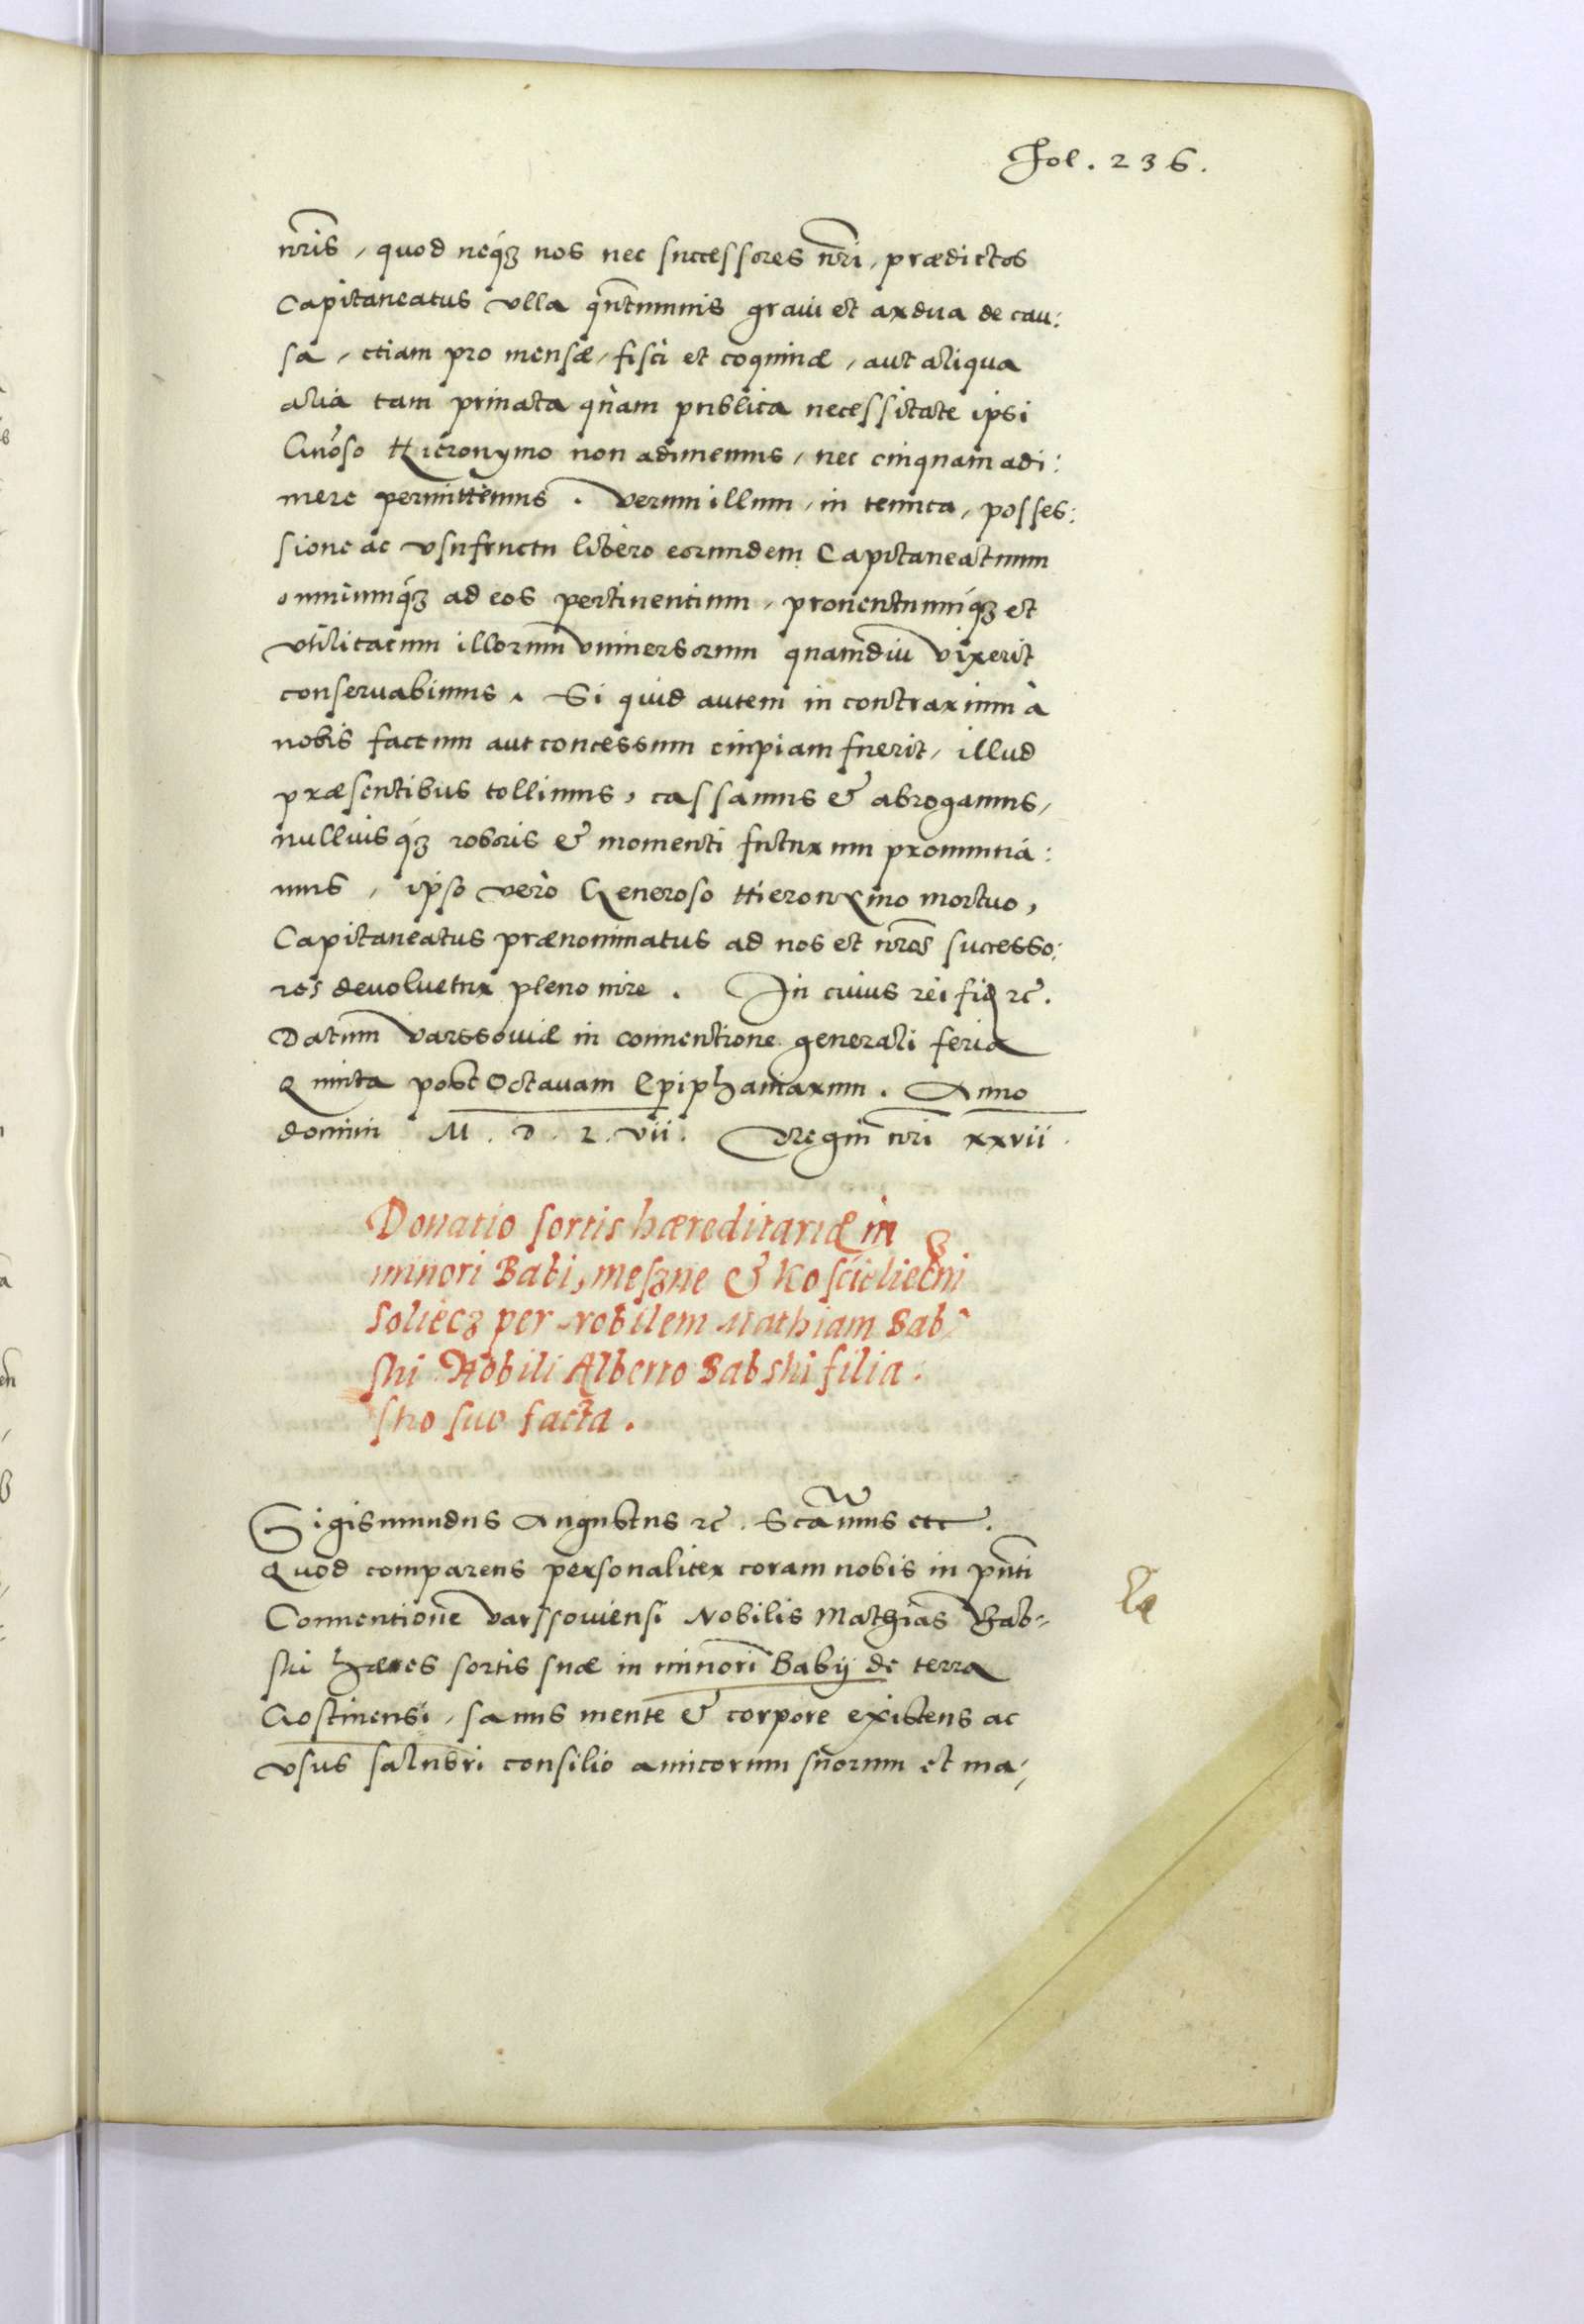 Fol. 236.
nr̃is, quod neq́ʒ nos nec successores nr̃i, prædictos
Capitaneatus vlla qñtumuis graui et ardua de cau:
sa, etiam pro mensæ, fisci et coquinæ, aut aliqua
alia tam priuata quàm publica necessitate ipsi
Gñoso Hieronymo non adimemus, nec cuiquam adi:
mere permittemus. Verum illum, in tenuta, posses:
sione ac vsufructu libero eorundem Capitaneatuum
omniumq́ʒ ad eos pertinentium, prouentuumq́ʒ et
vtilitatum illorum vniuersorum quamdiu vixerit
conseruabimus. Si quid autem in contrarium à
nobis factum aut concessum cuipiam fuerit, illud
præsentibus tollimus, cassamus & abrogamus,
nulliusq́ʒ roboris & momenti futurum pronuntia:
mus, ipso verò Generoso Hieronymo mortuo,
Capitaneatus prænominatus ad nos et nr̃os successo:
res deuoluetur pleno iure. In cuius rei fid ꝛc̃.
Datum Varssouiæ in conuentione generali feria
Quinta post Octauam Epiphaniarum. Anno
domini M. D. L. vii. Regni nr̃i xxvii.
Donatio sortis hæreditariæ in
minori Babi, meszne & Koscieliecʒni
Soliecz per Nobilem Mathiam Bab-
ski Nobili Alberto Babski filia:
stro suo facta.
Sigismundus Augustus ꝛc̃. Scamus etc.
Quod comparens personaliter coram nobis in pñti
Conuentione Varssouiensi Nobilis Mathias Bab-
ski hæres sortis suæ in minori Babij de terra
Gostinensi, sanus mente & corpore existens ac
vsus salubri consilio amicorum suorum et ma,